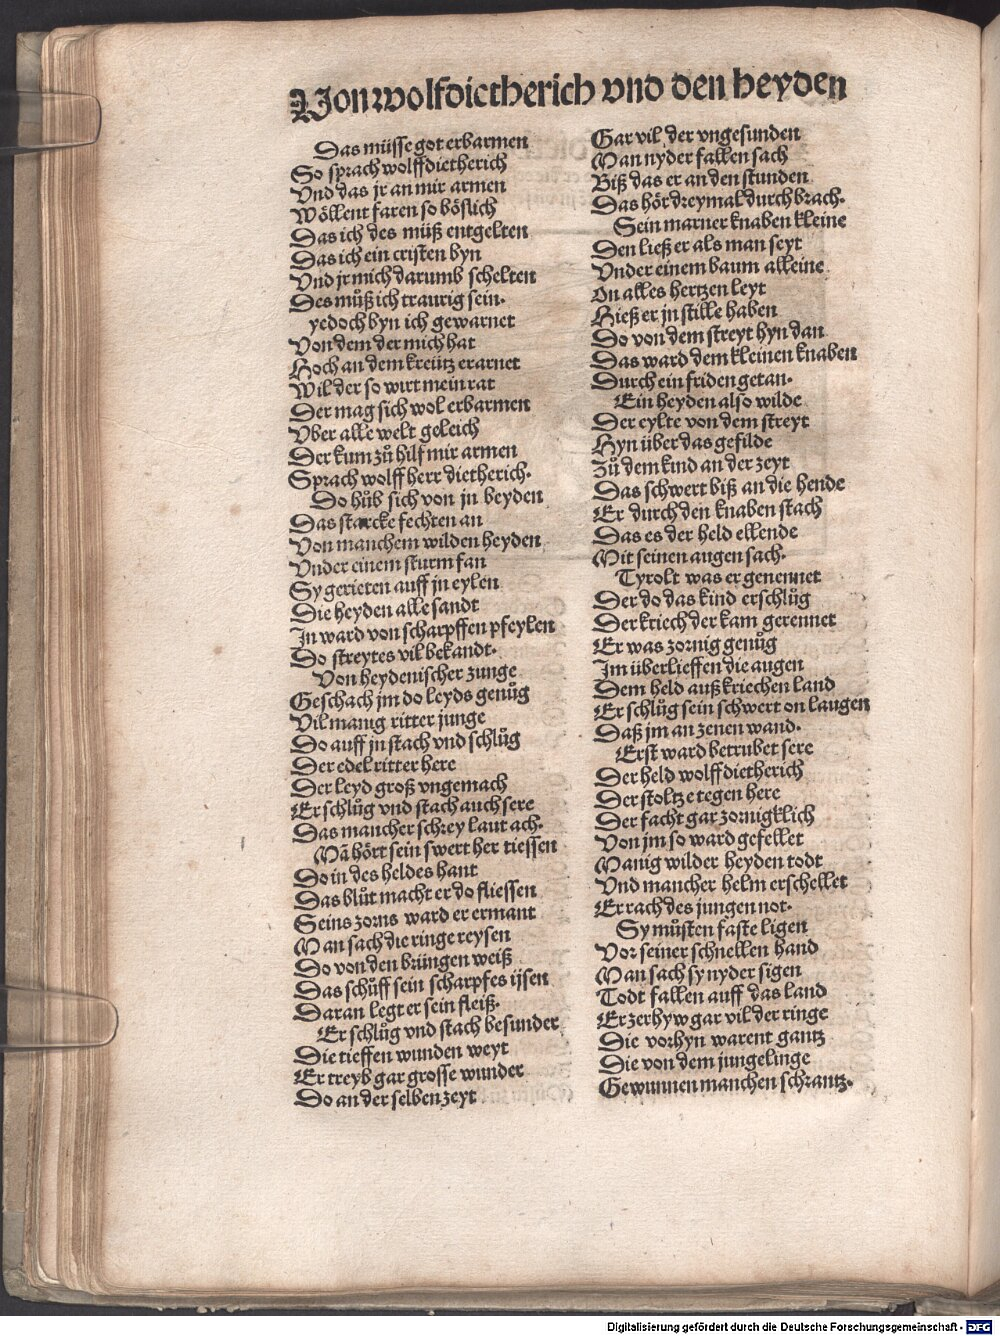 Von wolfdietherich vnd den heyden
Das müsse got erbarmen
So sprach wolffdietherich
Vnd das jr an mir armen
Wöllent faren so böslich
Das ich des müß entgelten
Das ich ein cristen byn
Vnd jr mich darumb schelten
Des můß ich traurig sein.
yedoch byn ich gewarnet
Von dem der mich hat
Hoch an dem kreütz erarnet
Wil der so wirt mein rat
Der mag sich wol erbarmen
Vber alle welt geleich
Der kum zů hilf mir armen
Sprach wolff herr dietherich.
Do hůb sich von jn beyden
Das starcke fechten an
Von manchem wilden heyden
Vnder einem sturm fan
Sy gerieten auff jn eylen
Die heyden alle sandt
In ward von scharpffen pfeylen
Do streytes vil bekandt.
Von heydenischer zunge
Geschach jm do leyds genůg
Vil manig ritter junge
Do auff jn stach vnd schlůg
Der edel ritter here
Der leyd groß vngemach
Er schlůg vnd stach auch sere
Das mancher schrey laut ach.
Mā hört sein swert her tiessen
Do in des heldes hant
Das blůt macht er do fliessen
Seins zorns ward er ermant
Man sach die ringe reysen
Do von den brüngen weiß
Das schůff sein scharpfes ijsen
Daran legt er sein fleiß.
Er schlůg vnd stach besunder
Die tieffen wunden weyt
Er treyb gar grosse wunder
Do an der selben zeyt
Gar vil der vngesunden
Man nyder fallen sach
Biß das er an den stunden
Das hör dreymal durch brach.
Sein marner knaben kleine
Den ließ er als man seyt
Vnder einem baum alleine
On alles hertzen leyt
Hieß er jn stille haben
Do von dem streyt hyn dan
Das ward dem kleinen knaben
Durch ein friden getan.
Ein heyden also wilde
Der eylte von dem streyt
Hyn über das gefilde
Zů dem kind an der zeyt
Das schwert biß an die hende
Er durch den knaben stach
Das es der held ellende
Mit seinen augen sach.
Tyrolt was er genennet
Der do das kind erschlůg
Der kriech der kam gerennet
Er was zornig genůg
Im überlieffen die augen
Dem held auß kriechen land
Er schlůg sein schwert on laugen
Daß jm an zenen wand.
Erst ward betrubet sere
Der held wolffdietherich
Der stoltze tegen here
Der facht gar zornigklich
Von jm so ward gefellet
Manig wilder heyden todt
Vnd mancher helm erschellet
Er rach des jungen not.
Sy můsten faste ligen
Vor seiner schnellen hand
Man sach sy nyder sigen
Todt fallen auff das land
Er zerhyw gar vil der ringe
Die vorhyn warent gantz
Die von dem jungelinge
Gewunnen manchen schrantz.
Digitalisierung gefördert durch die Deutsche Forschungsgemeinschaft - DFG